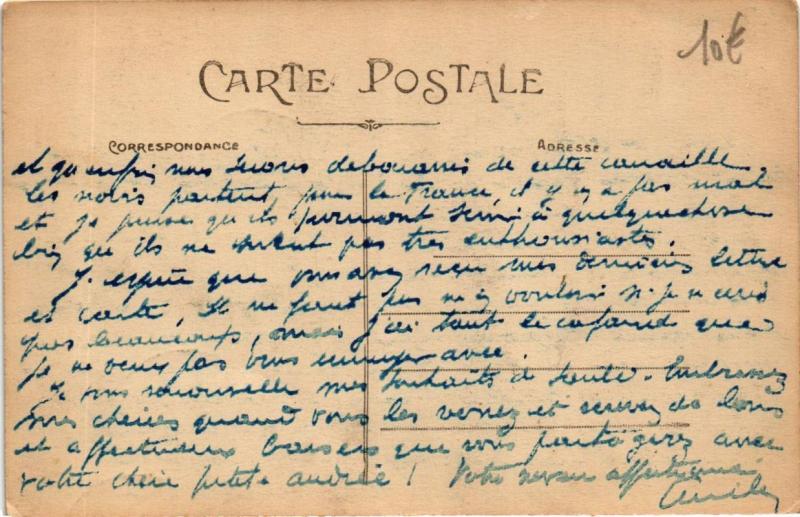 10€
CARTE POSTALE
CORRESPONDANCE
ADRESSE
et qu'enfin nous serons débarrassés de cette canaille.
Les noirs partent pour la France, il y en a pas mal
et je pense qu'ils pourront servir à quelque chose
bien qu'ils ne soient pas très enthousiastes.
J'espère que vous avez reçu mes dernières lettre
et carte, il ne faut pas m'en vouloir si je n'écris
pas beaucoup, mais j'ai tant le cafard que
je ne veux pas vous ennuyer avec.
Je vous renouvelle mes souhaits de santé. Embrassez
mes chéries quand vous les verrez et recevez de bons
et affectueux baisers que vous partagerez avec
votre chère petite andrée ! Votre neveu affectionné